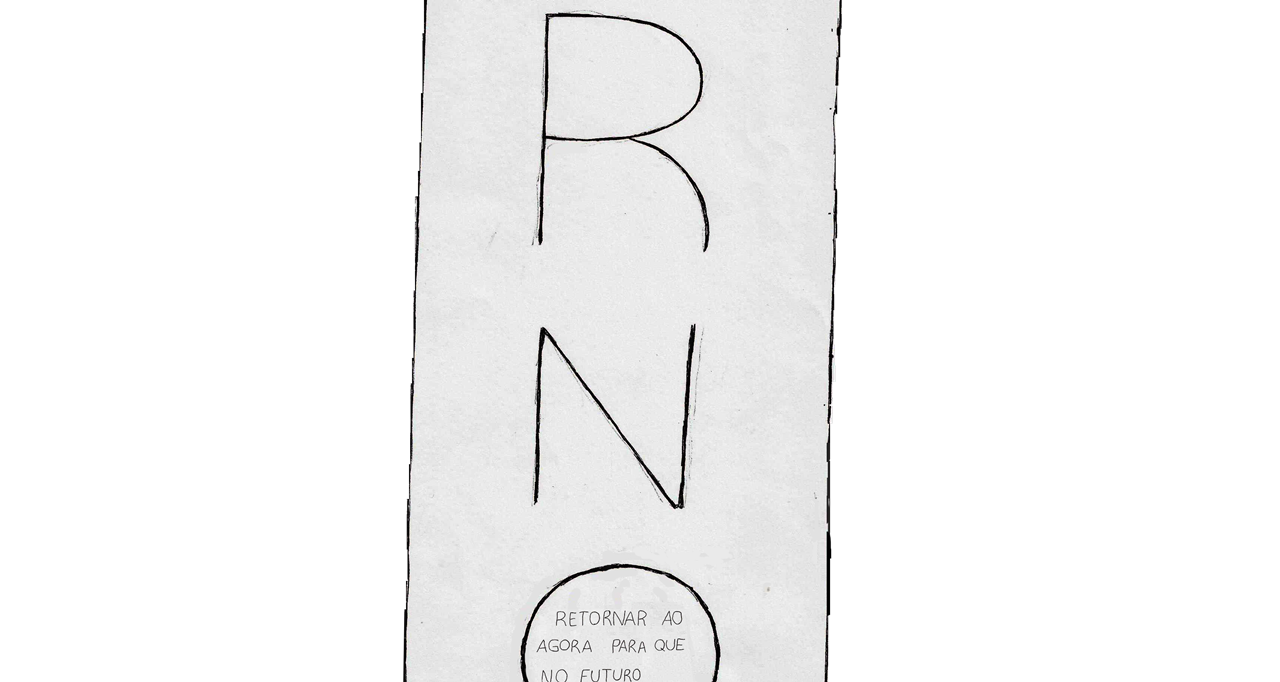 R
N
O
RETORNAR AO
AGORA PARA QUE
NO FUTURO